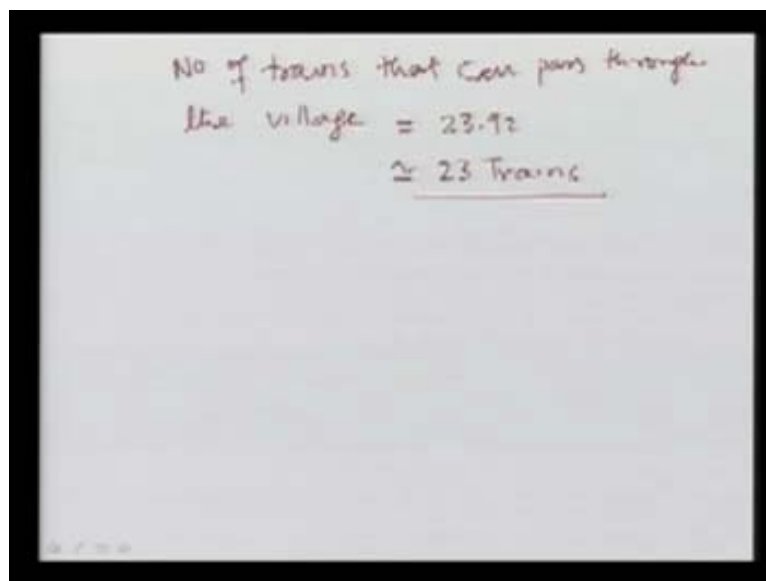 No of trains that can pass through
the village = 23.92
≃ 23 Trains